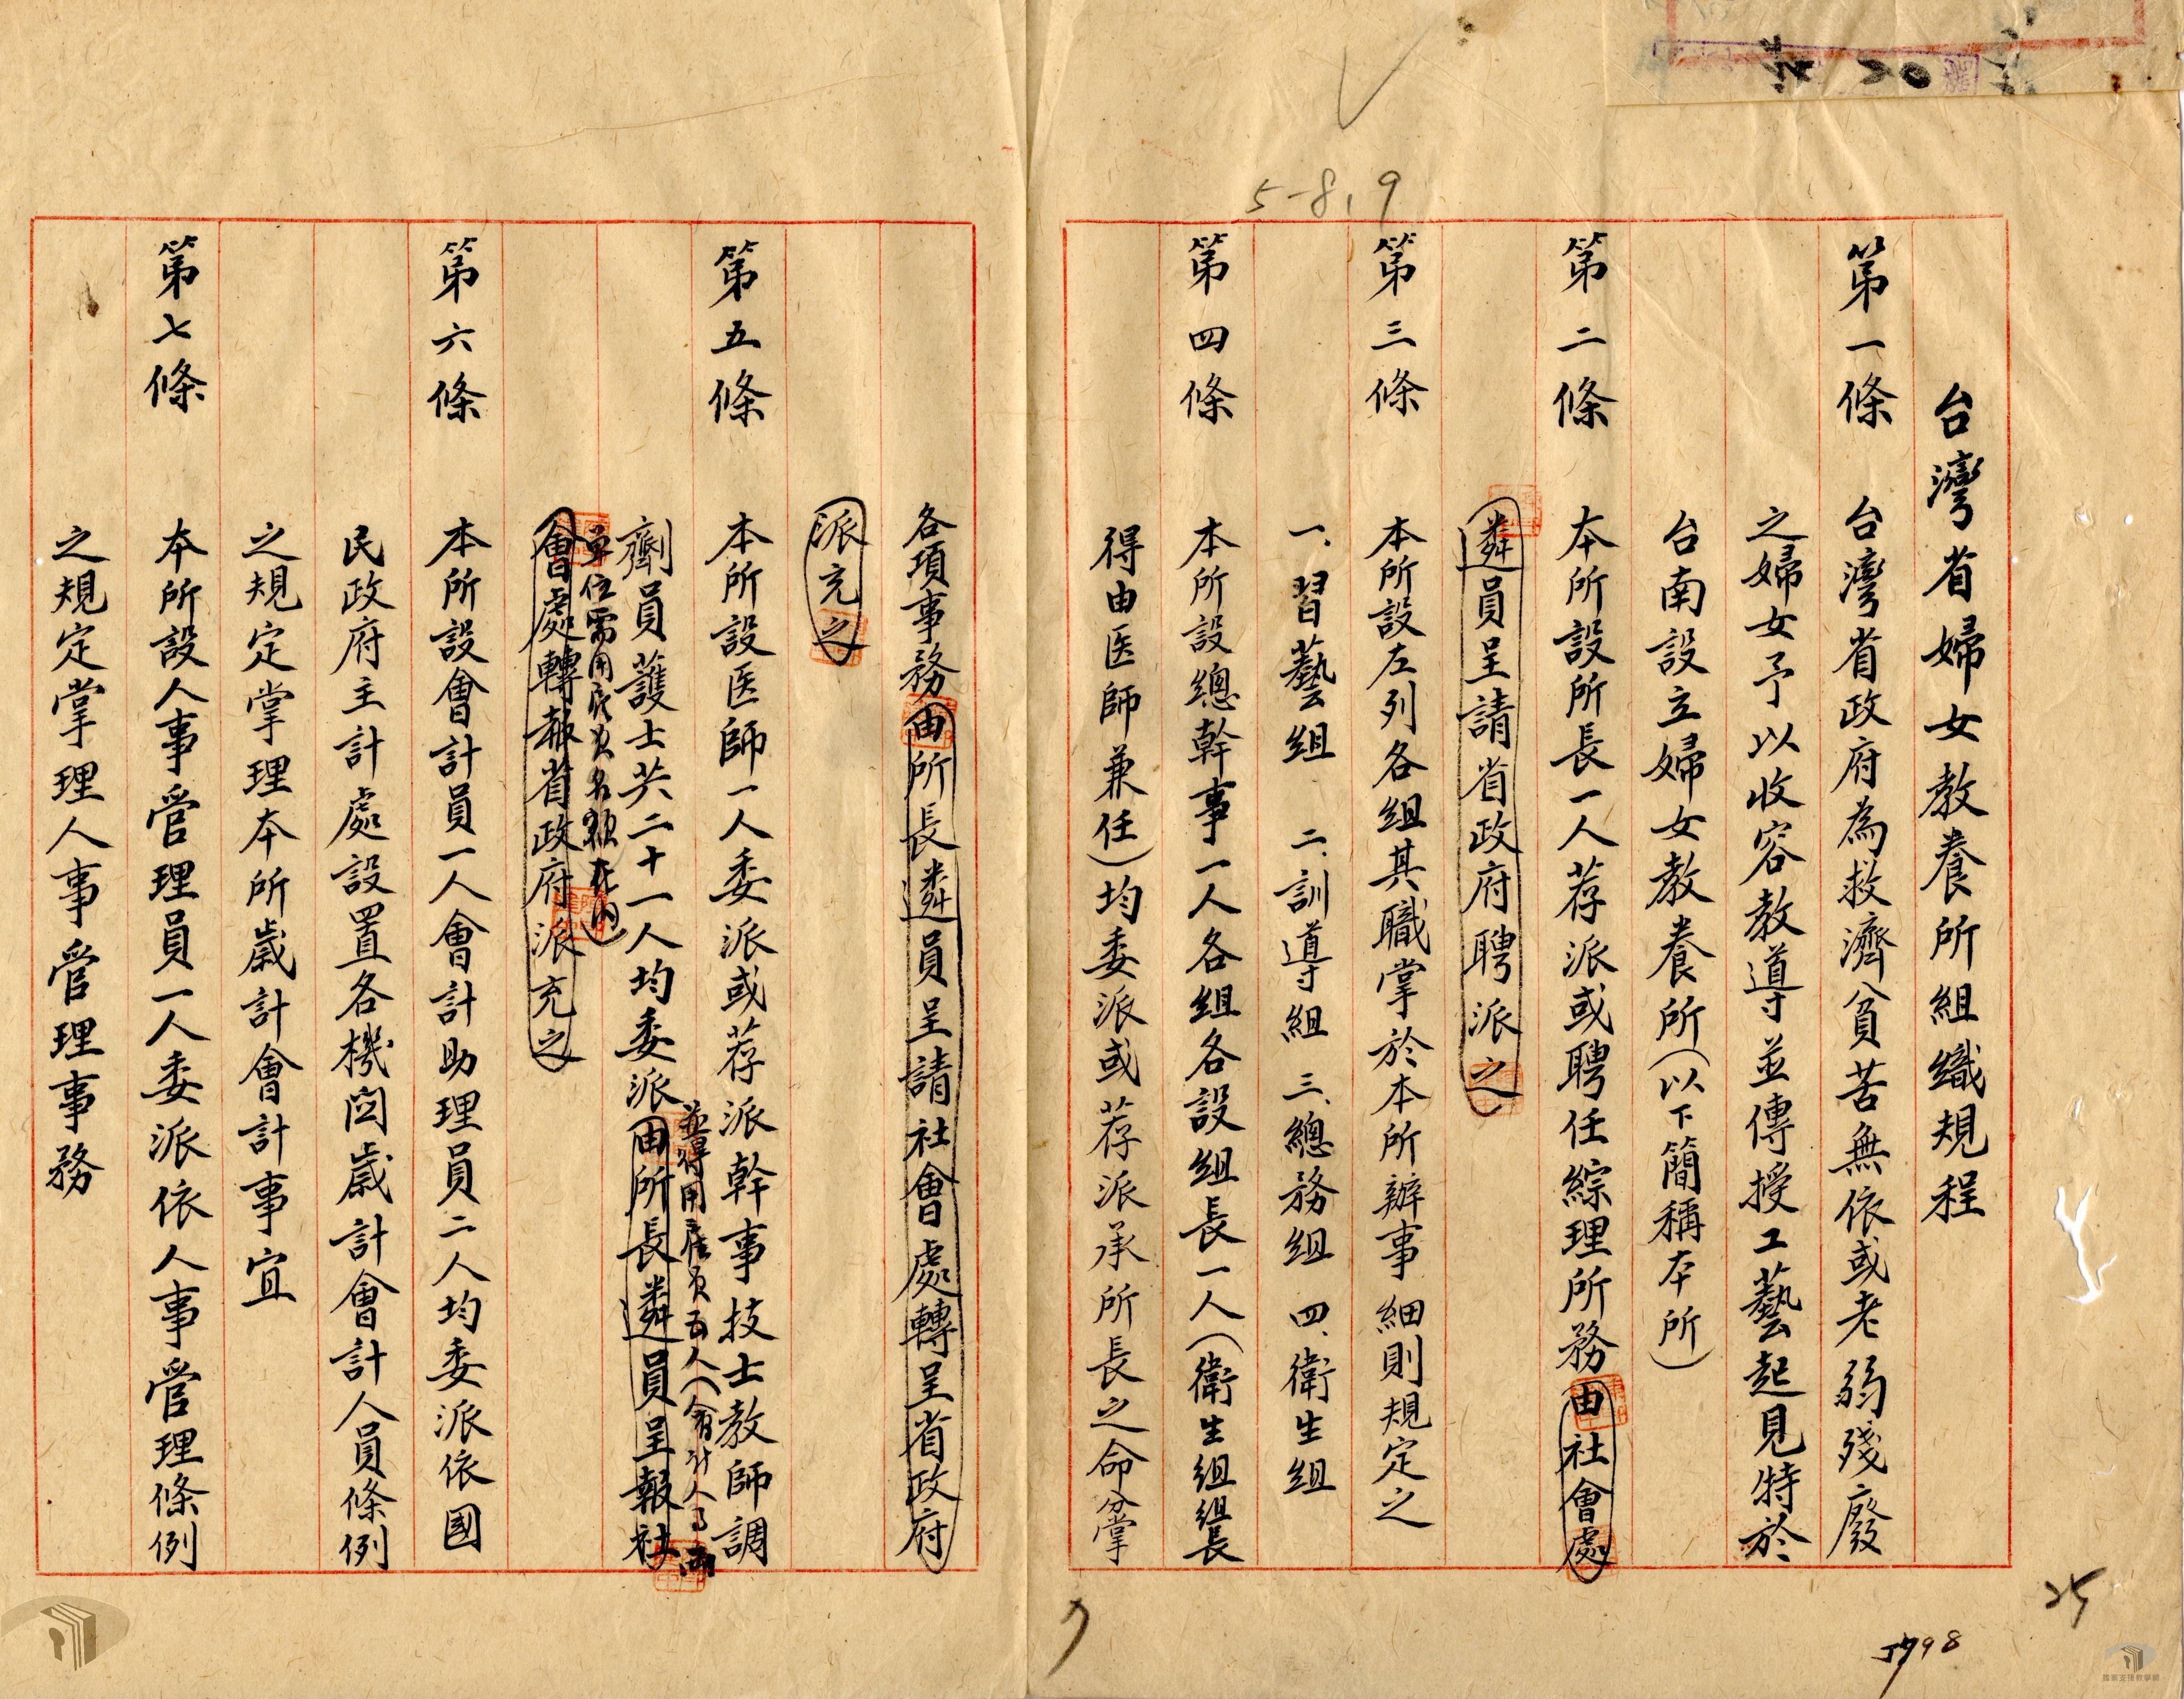 5-8,9
台灣省婦女教養所組織規程
第一條　台灣省政府為救濟貧苦無依或老弱殘廢
之婦女予以收容教導並傳授工藝起見特於
台南設立婦女教養所(以下簡稱本所)
第二條　本所設所長一人荐派或聘任綜理所務由社會處
遴員呈請省政府聘派之
第三條　本所設左列各組其職掌於本所辦事細則規定之
一、習藝組　二、訓導組　三、總務組　四、衛生組
第四條　本所設總幹事一人各組各設組長一人(衛生組組長
得由医師兼任)均委派或荐派承所長之命分掌
各項事務由所長遴員呈請社會處轉呈省政府
派充之
第五條　本所設医師一人委派或荐派幹事技士教師調
並得用雇員五人(會計人事兩
劑員護士共二十一人均委派由所長遴員呈報社
單位需用雇員名額在內)
會處轉報省政府派充之
第六條　本所設會計員一人會計助理員二人均委派依國
民政府主計處設置各機関歲計會計人員條例
之規定掌理本所歲計會計事宜
第七條　本所設人事管理員一人委派依人事管理條例
之規定掌理人事管理事務
25